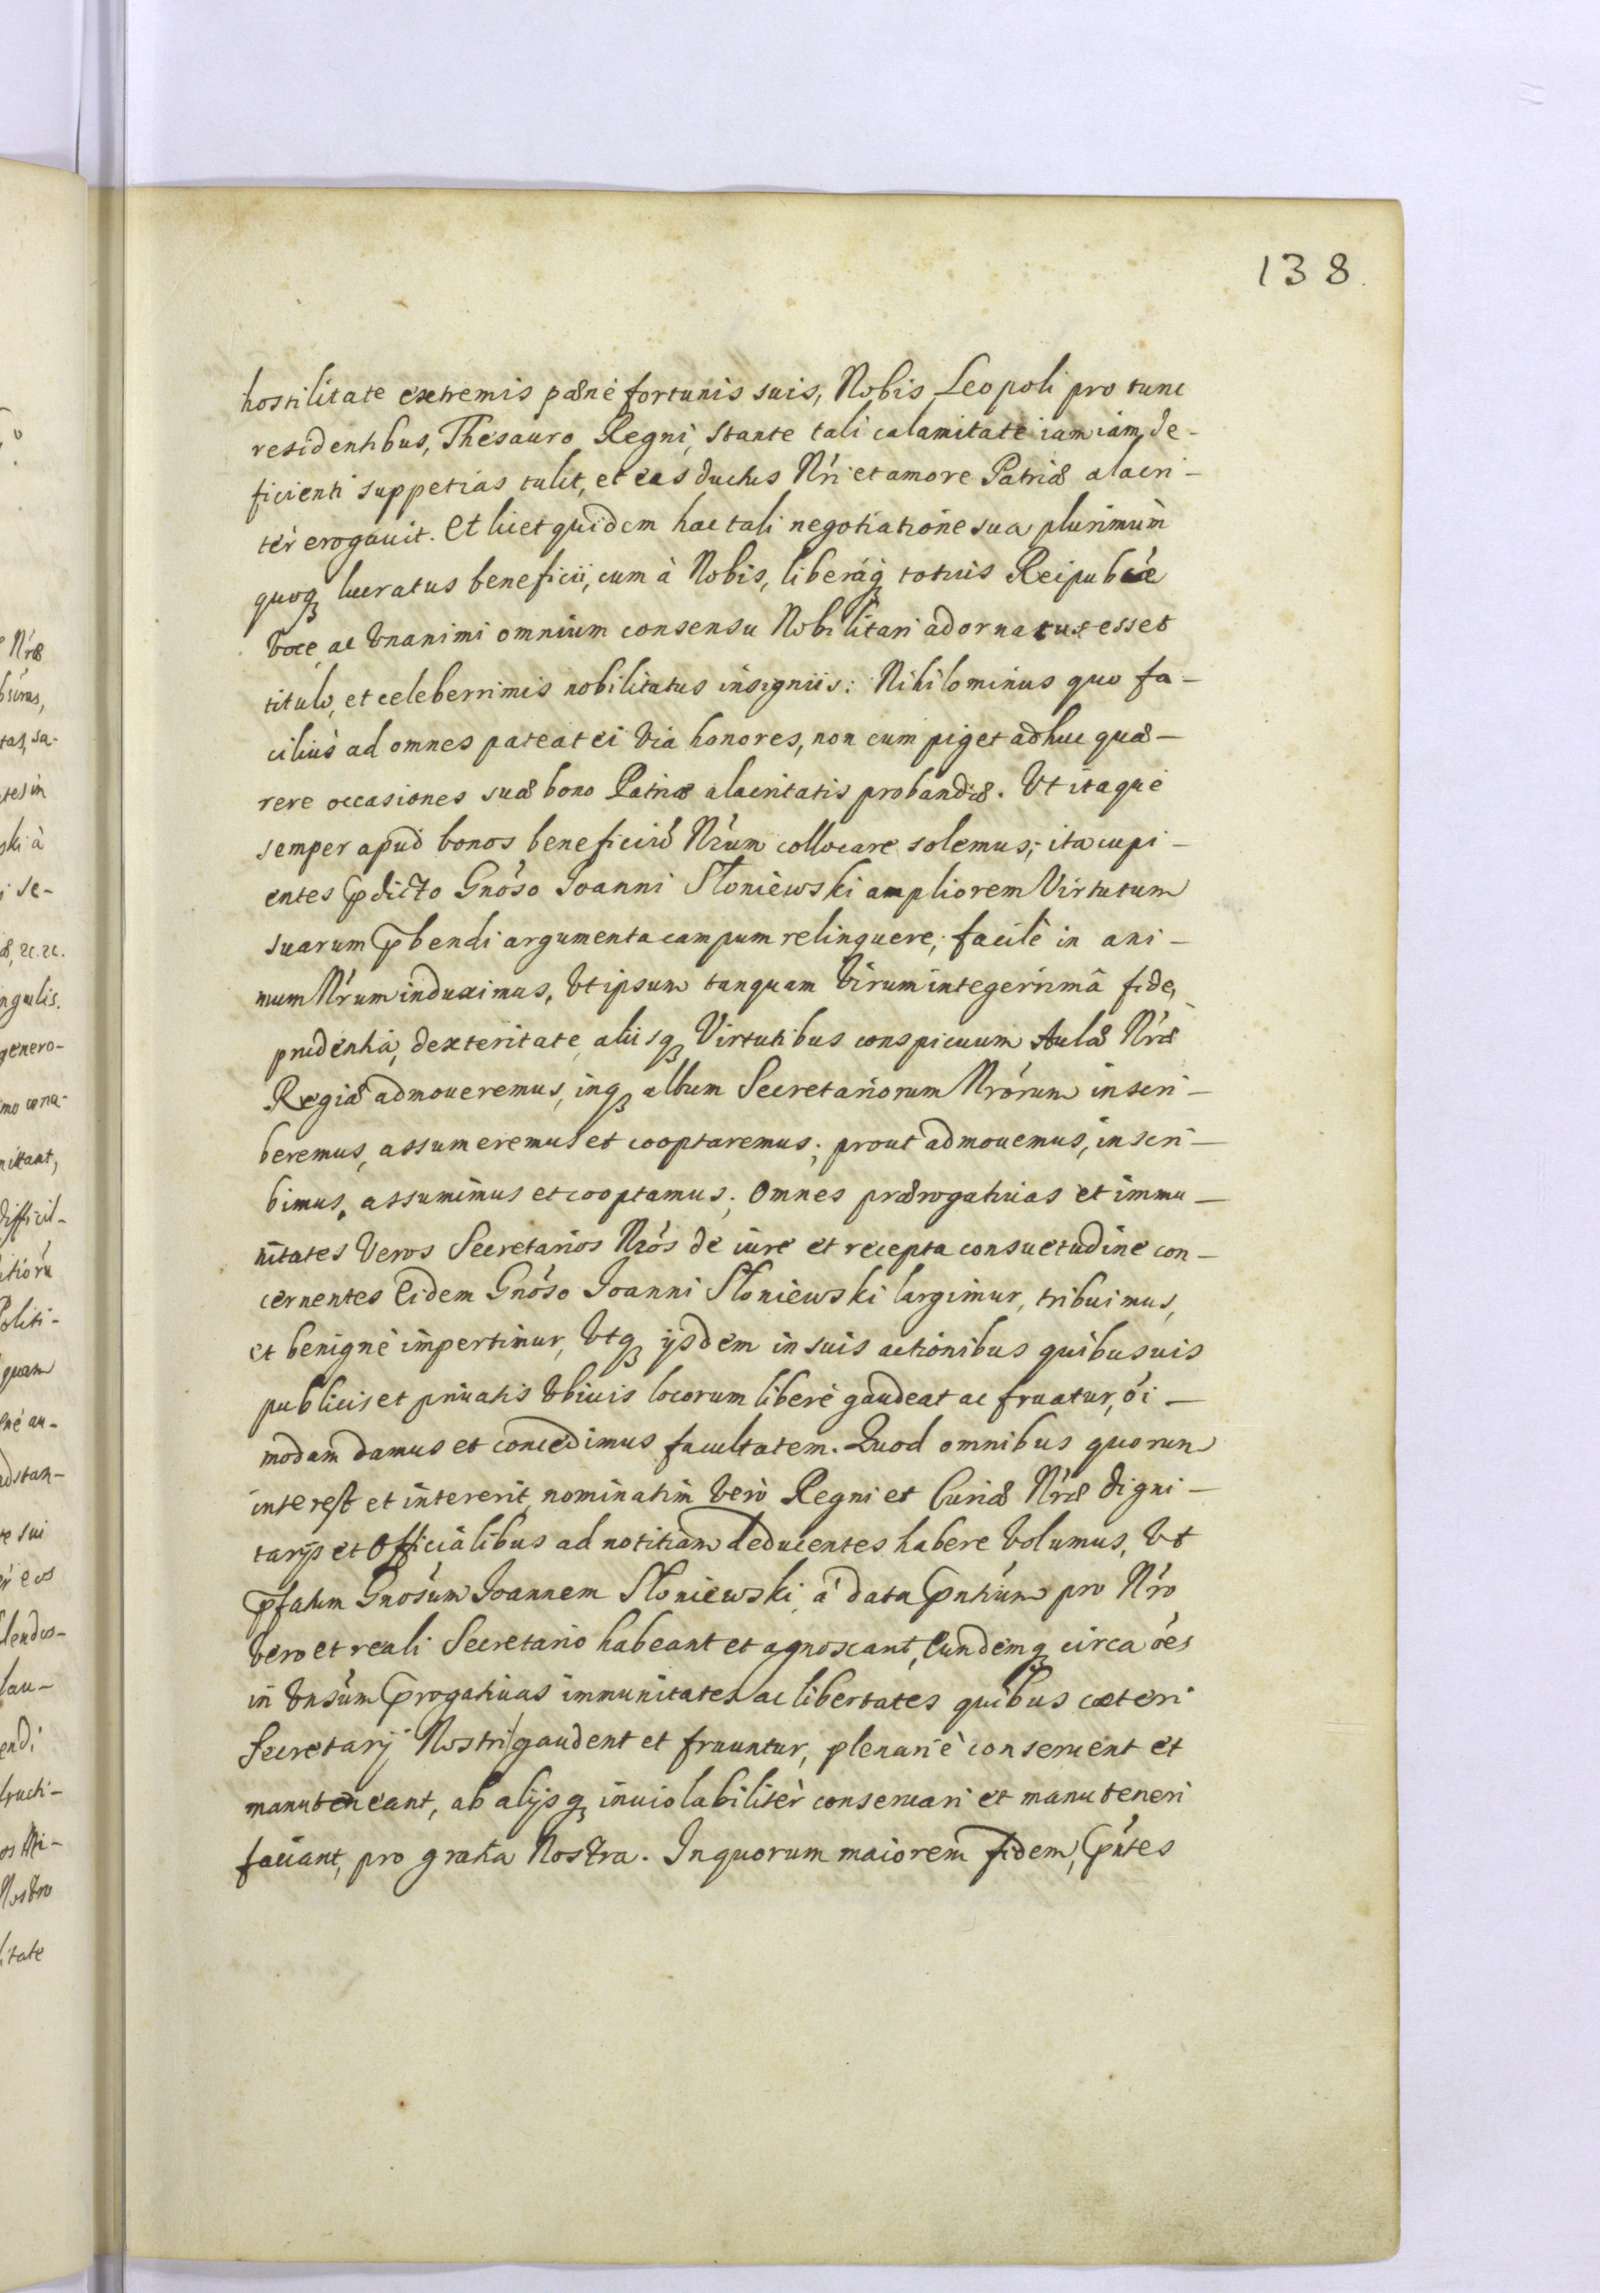 138
hostilitate extremis pæné fortunis suis, Nobis Leopoli pro tunc
residentibus, Thesauro Regni, stante tali calamitate iam iam de-
ficienti suppetias tulit, et eas ductus Nri et amore Patriæ alacri-
tèr erogauit. Et licet quidem hac tali negotiatione sua plurimùm
quoq lucratus beneficii, cum à Nobis, liberáq totius Reipubcæ
voce, ac vnanimi omnium consensu Nobilitari adornatus esset
titulo, et celeberrimis nobilitatus insigniis: Nihilominus quo fa-
ciliùs ad omnes pateat ei via honores, non eum piget adhuc quæ-
rere occasiones suæ bono Patriæ alacritatis probandæ. Vt itaque
semper apud bonos beneficiu Nrum collocare solemus; ita cupi-
entes pdicto Gnoso Joanni Słoniewski ampliorem Virtutum
suarum pbendi argumenta campum relinquere; facilè in ani-
mum Nrum induximus, vt ipsum tanquam virum integerrimâ fide,
prudentia, dexteritate, aliisq Virtutibus conspicuum Aulæ Nræ
Regiæ admoueremus, inq album Secretariorum Nrorum inscri-
beremus, assumeremus et cooptaremus; prout admouemus, inscri-
bimus, assumimus et cooptamus; Omnes prærogatiuas et immu-
nitates veros Secretarios Nros de iure et recepta consuetudine con-
cernentes Eidem Gnoso Joanni Słoniewski largimur, tribuimus,
et benignè impertimur, vtq ijsdem in suis actionibus quibusuis
publicis et priuatis vbiuis locorum liberè gaudeat ac fruatur, oi-
modam damus et concedimus facultatem. Quod omnibus quorum
interest et intererit, nominatim verò Regni et Curiæ Nræ digni-
tarijs et Officialibus ad notitiam deducentes habere volumus, vt
pfatum Gnosum Joannem Słoniewski, á data pntium pro Nro
vero et reali Secretario habeant et agnoscant, Eundemq circa oes
in vnsum progatiuas immunitates ac libertates quibus cæteri
Secretarij Nostri gaudent et fruuntur, plenariè conseruent et
manuteneant, ab alijsq inuiolabilitèr conseruari et manuteneri
faciant, pro gratia Nostra. In quorum maiorem fidem, pntes